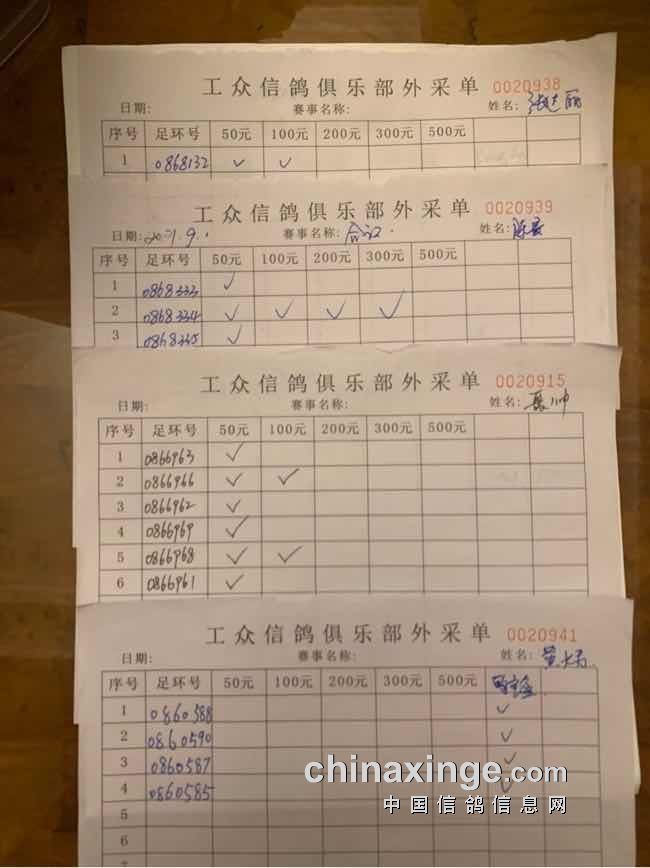 工众信鸽俱乐部外采单 0020938
日期: 赛事名称: 姓名:
序号 足环号 50元 100元 200元 300元 500元
1 0868132 ✓ ✓
工众信鸽俱乐部外采单 0020939
日期: 2021.9. 赛事名称: 姓名:
序号 足环号 50元 100元 200元 300元 500元
1 0868333 ✓
2 0868334 ✓ ✓ ✓ ✓
3 0868335 ✓
工众信鸽俱乐部外采单 0020915
日期: 赛事名称: 姓名:
序号 足环号 50元 100元 200元 300元 500元
1 0866963 ✓
2 0866966 ✓ ✓
3 0866962 ✓
4 0866969 ✓
5 0866968 ✓ ✓
6 0866961 ✓
工众信鸽俱乐部外采单 0020941
日期: 赛事名称: 姓名:
序号 足环号 50元 100元 200元 300元 500元
1 0860588 ✓
2 0860590 ✓
3 0860587 ✓
4 0860585 ✓
5
6
chinaxinge.com
中国信鸽信息网